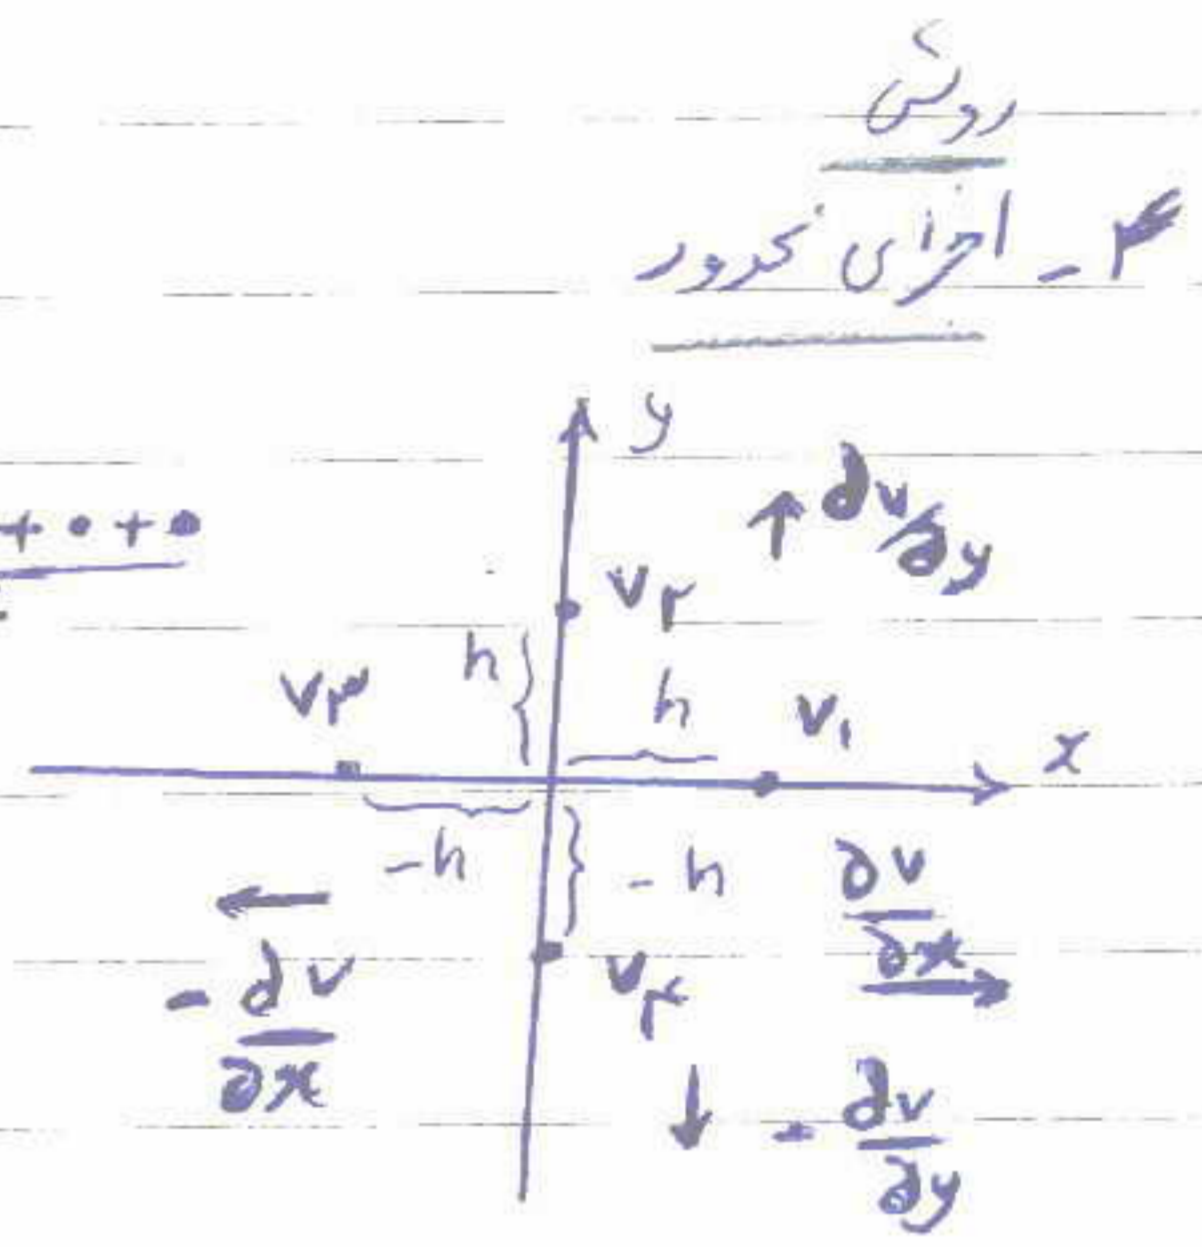 روش
۴ - اجزای محدود
y
∂v/∂y
+ ۰ + ۰
v۲
h
v۳
h
v۱
x
-h
-h
∂v/∂x
-∂v/∂x
v۴
-∂v/∂y